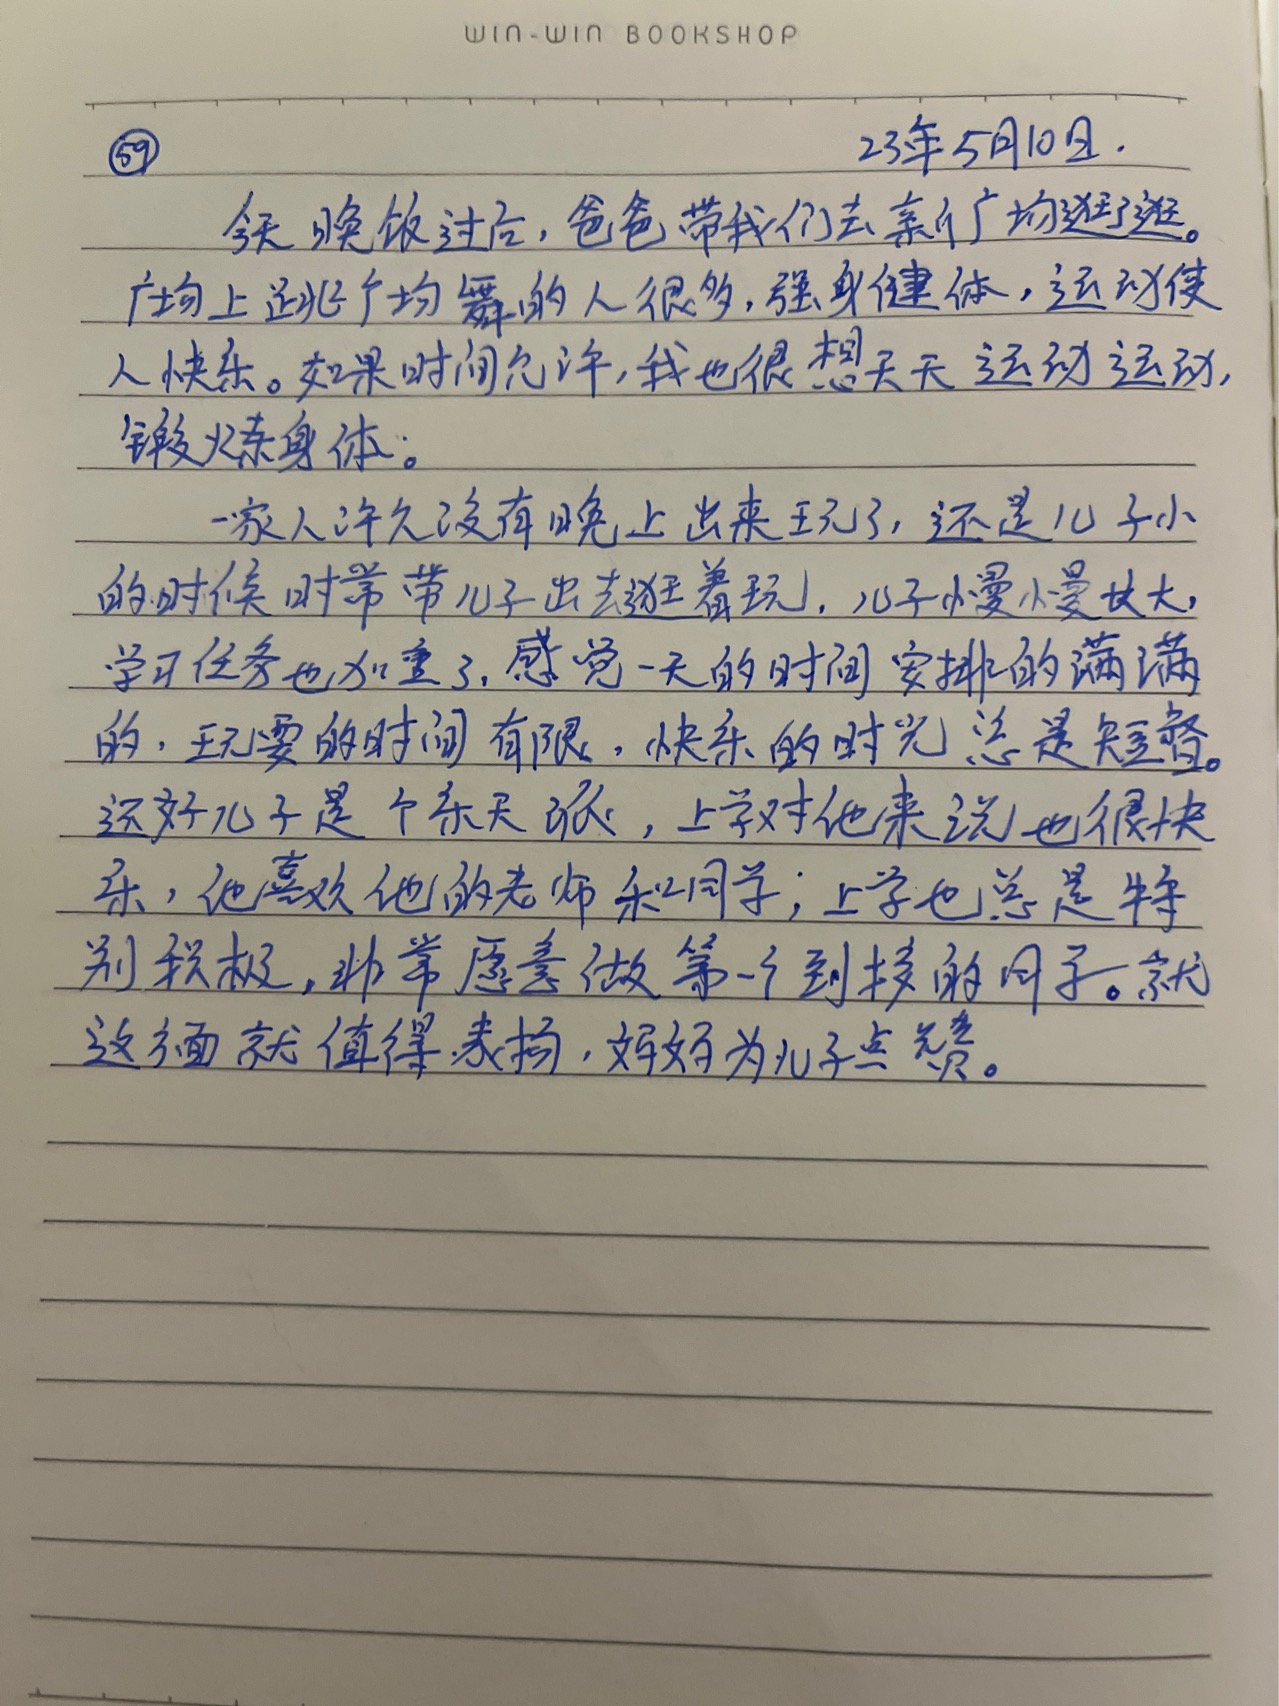 WIN-WIN BOOKSHOP
59
23年5月10日.
今天晚饭过后，爸爸带我们去新广场逛了逛。
广场上跳广场舞的人很多，强身健体，运动使
人快乐。如果时间允许，我也很想天天运动运动，
锻炼身体。
一家人许久没有晚上出来玩了，还是儿子小
的时候时常带儿子出去逛着玩，儿子慢慢长大，
学习任务也加重了，感觉一天的时间安排的满满
的，玩耍的时间有限，快乐的时光总是短暂。
还好儿子是个乐天派，上学对他来说也很快
乐，他喜欢他的老师和同学；上学也总是特
别积极，非常愿意做第一个到校的同学。就
这方面就值得表扬，妈妈为儿子点赞。